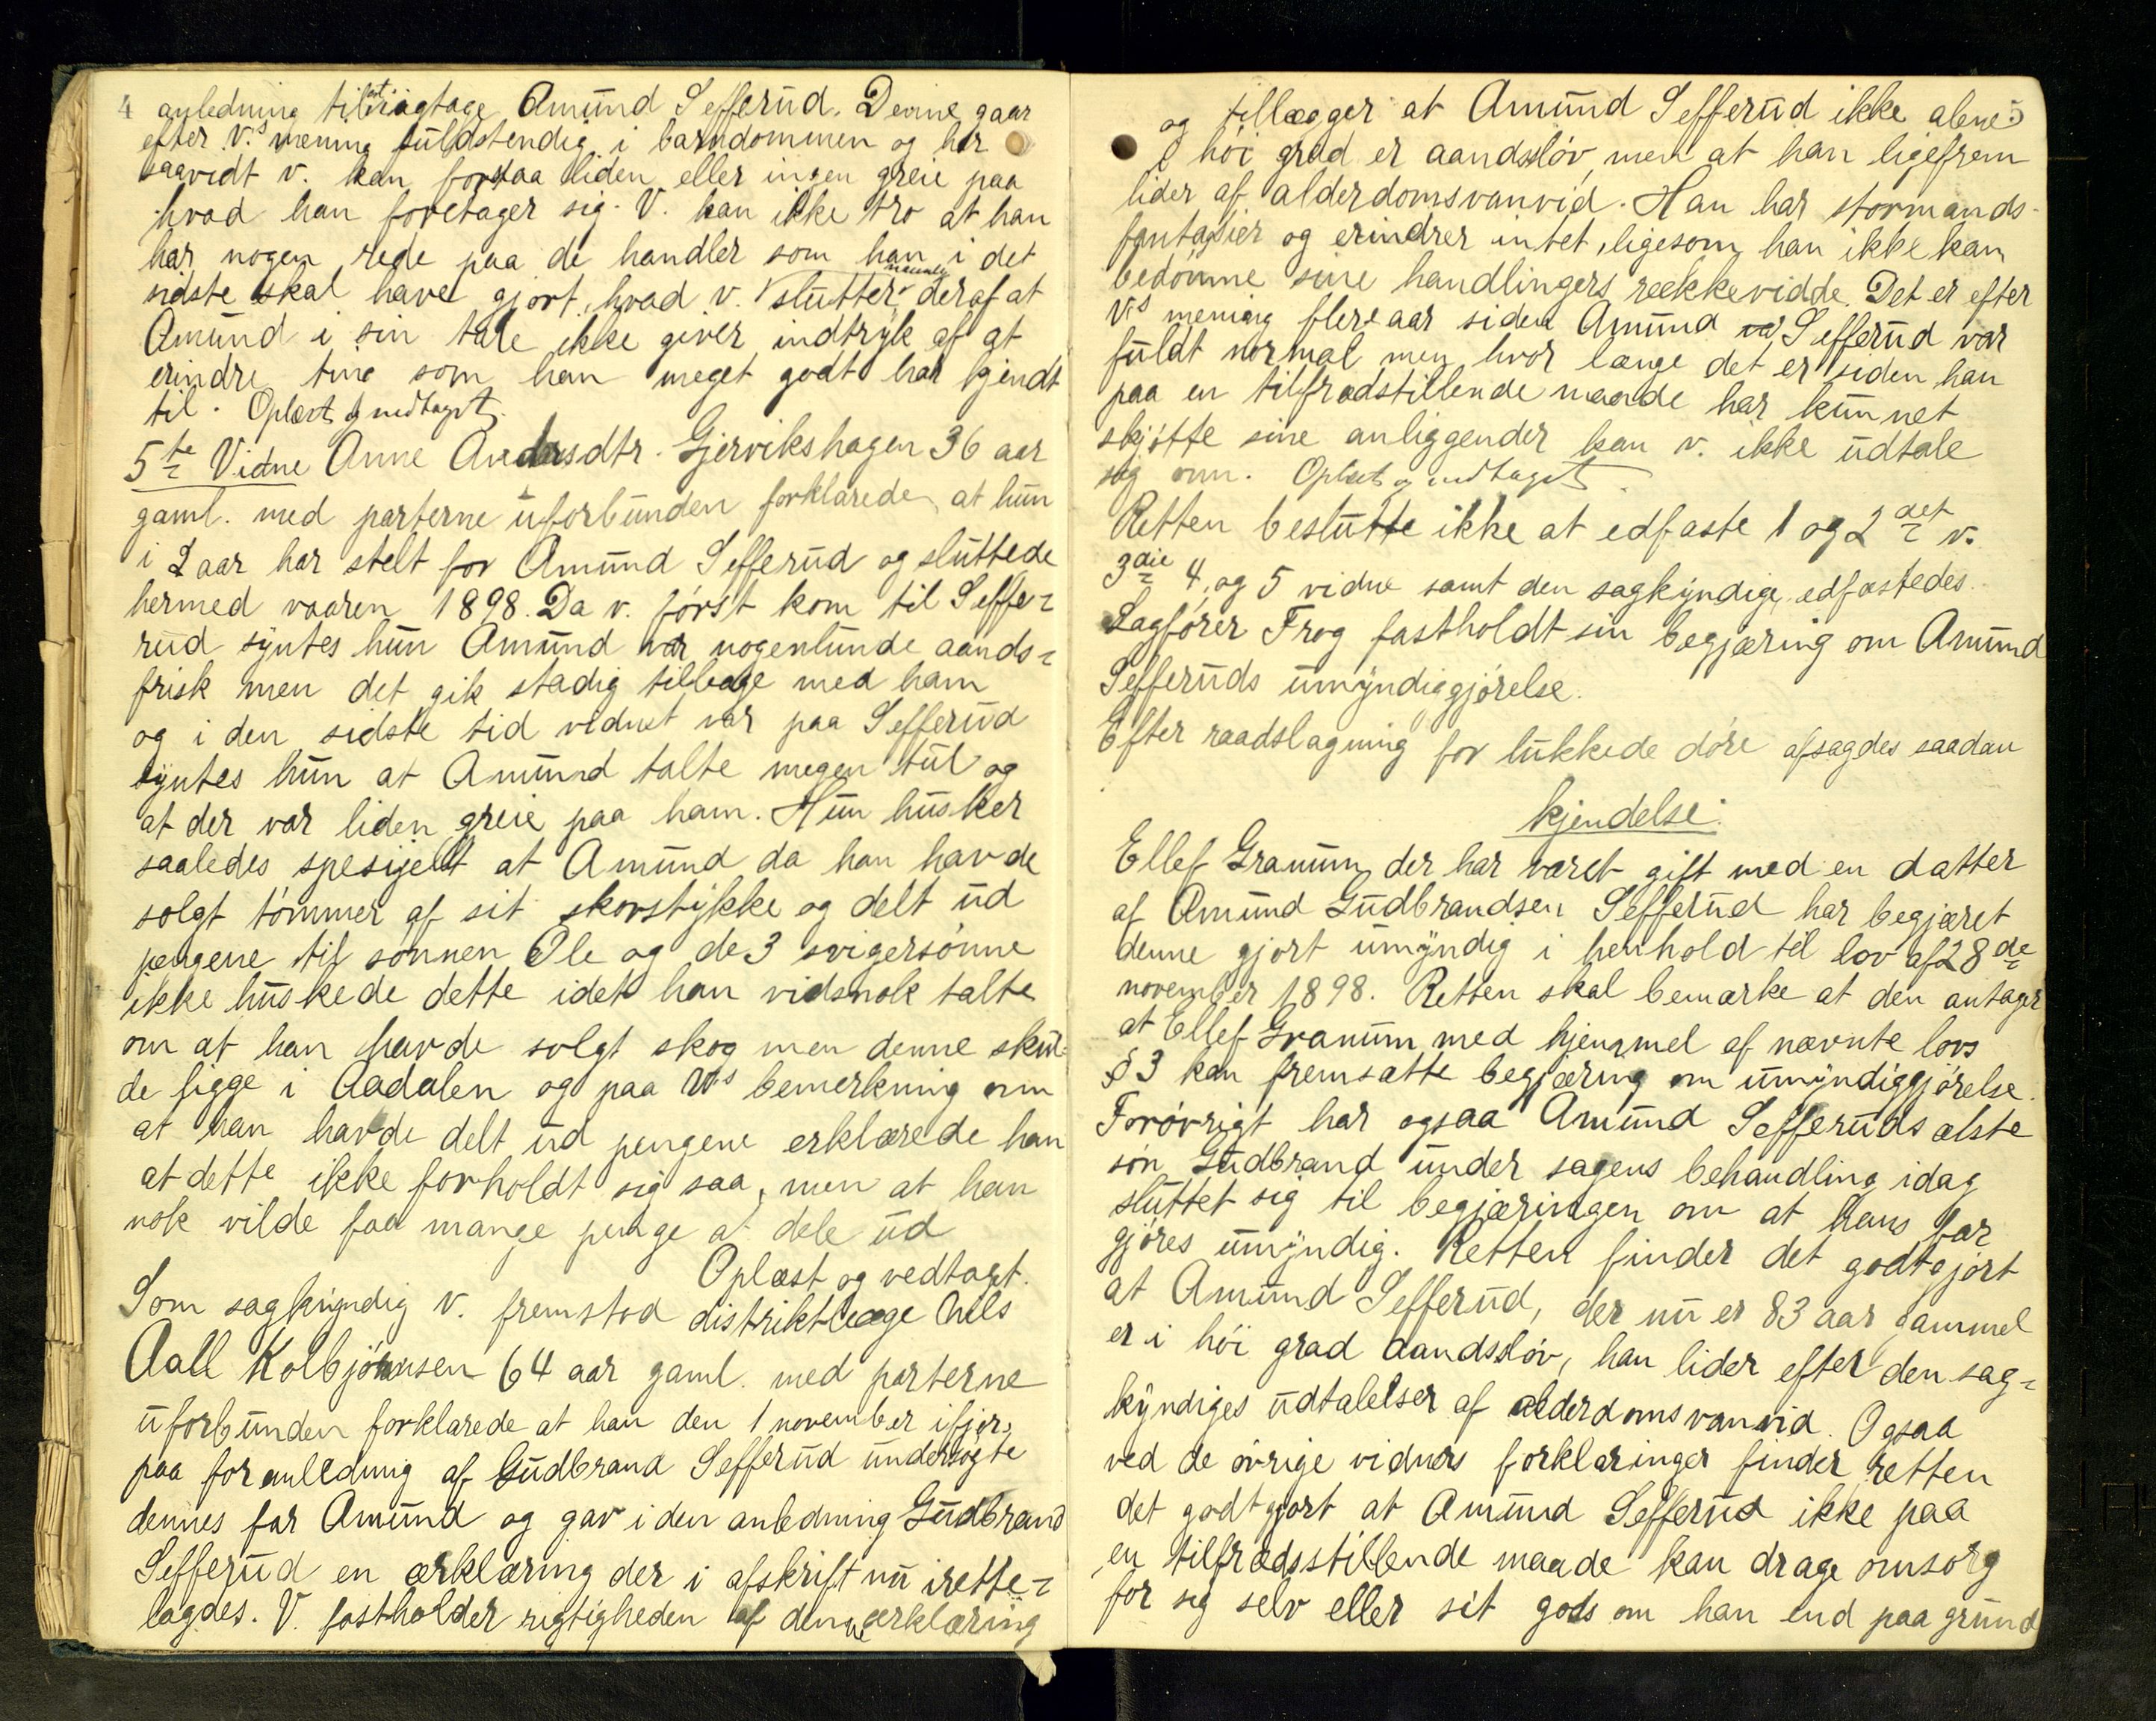 4 anledning til at iagtage Amund Sefferud. Denne gaar
efter v.s mening fuldstendig i barndommen og har
saavidt v. kan forstaa liden eller ingen greie paa
hvad han foretager sig. V. kan ikke tro at han
har nogen rede paa de handler som han i det
sidste skal have gjort, hvad v. slutter navnlig deraf at
Amund i sin tale ikke giver indtryk af at
erindre ting som han meget godt har kjendt
til. Oplæst og vedtaget.
5te Vidne Anne Andersdtr. Gjervikshagen 36 aar
gaml. med parterne uforbunden forklarede at hun
i 2 aar har stelt for Amund Sefferud og sluttede
hermed vaaren 1898. Da v. först kom til Seffe=
rud syntes hun Amund var nogenlunde aands=
frisk men det gik stadig tilbage med ham
og i den sidste tid vidnet var paa Sefferud
syntes hun at Amund talte megen tul og
at der var liden greie paa ham. Hun husker
saaledes spesijelt at Amund da han havde
solgt tömmer af sit skovstykke og delt ud
pengene til sönnen Ole og de 3 svigersönne
ikke huskede dette idet han vidsnok talte
om at han havde solgt skog men denne skul=
de ligge i Aadalen og paa v.s bemerkning om
at han havde delt ud pengene erklærede han
at dette ikke forholdt sig saa, men at han
nok vilde faa mange penge at dele ud
Oplæst og vedtaget.
Som sagkyndig v. fremstod distriktslæge Nils
Aall Kolbjörnsen 64 aar gaml. med parterne
uforbunden forklarede at han den 1 november ifjor,
paa foranledning af Gudbrand Sefferud undersögte
dennes far Amund og gav i den anledning Gudbrand
Sefferud en ærklæring der i afskrift nu irette=
lagdes. V. fastholder rigtigheden af denne ærklæring
5
og tillægger at Amund Sefferud ikke alene
i höi grad er aandsslöv, men at han ligefrem
lider af alderdomsvanvid. Han har stormands-
fantasier og erindrer intet, ligesom han ikke kan
bedömme sine handlingers rækkevidde. Det er efter
V.s mening flere aar siden Amund Sefferud var
fuldt normal men hvor længe det er siden han
paa en tilfredstillende maade har kunnet
skjötte sine anliggender kan v. ikke udtale
sig om. Oplæst og vedtaget.
Retten beslutte ikke at edfaste 1 og 2det v.
3die 4, og 5 vidne samt den sagkyndige edfæstedes.
Sagförer Frog fastholdt sin begjæring om Amund
Sefferuds umyndiggjörelse.
Efter raadslagning for lukkede döre afsagdes saadan
kjendelse:
Ellef Granum, der har været gift med en datter
af Amund Gudbrandsen Sefferud har begjæret
denne gjort umyndig i henhold til lov af 28de
november 1898. Retten skal bemærke at den antager
at Ellef Granum med hjemmel af nævnte lovs
§ 3 kan fremsætte begjæring om umyndiggjörelse.
Forövrigt har ogsaa Amund Sefferuds ælste
sön Gudbrand under sagens behandling idag
sluttet sig til begjæringen om at hans far
gjöres umyndig. Retten finder det godtgjort
at Amund Sefferud, der nu er 83 aar gammel
er i höi grad aandsslöv, han lider efter den sag=
kyndiges udtalelser af alderdomsvanvid. Ogsaa
ved de övrige vidners forklaringer finder retten
det godtgjort at Amund Sefferud ikke paa
en tilfredsstillende maade kan drage omsorg
for sig selv eller sit gods om han end paa grund